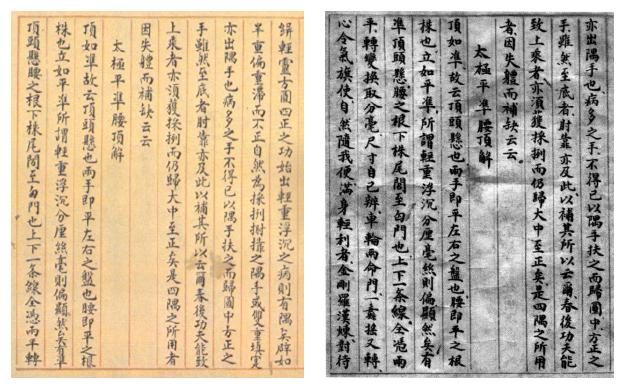 輕靈方圓四正之功始出輕重浮沉之病則有隅矣辟如
半重偏重滯而不正自然為採挒肘靠之隅手或雙重填實
亦出隅手也病多之手不得已以隅手扶之而歸圓中方正之
手雖然至底者肘靠亦及此以補其所以云爾春後功夫能致
上乘者亦須獲採挒而仍歸大中至正矣是四隅之所用者
因失體而補缺云云
太極平準腰頂解
頂如準故云頂頭懸也兩手即平左右之盤也腰即平之根
株也立如平準所謂輕重浮沉分厘絲毫則偏顯然矣有準
頂頭懸腰之根下株尾閭至囟門也上下一條線全憑兩平轉
亦出隅手也病多之手不得已以隅手扶之而歸圓中方正之
手雖然至底者肘靠亦及此以補其所以云爾春後功夫能
致上乘者亦須獲採挒而仍歸大中至正矣是四隅之所用
者因失體而補缺云云
太極平準腰頂解
頂如準故云頂頭懸也兩手即平左右之盤也腰即平之根
株也立如平準所謂輕重浮沉分釐毫絲則偏顯然矣有
準頂頭懸腰之根下株尾閭至囟門也上下一條線全憑兩
平轉變換取分毫尺寸自己辨車輪兩命門一纛搖又轉
心令氣旗使自然隨我便滿身輕利者金剛羅漢煉對待